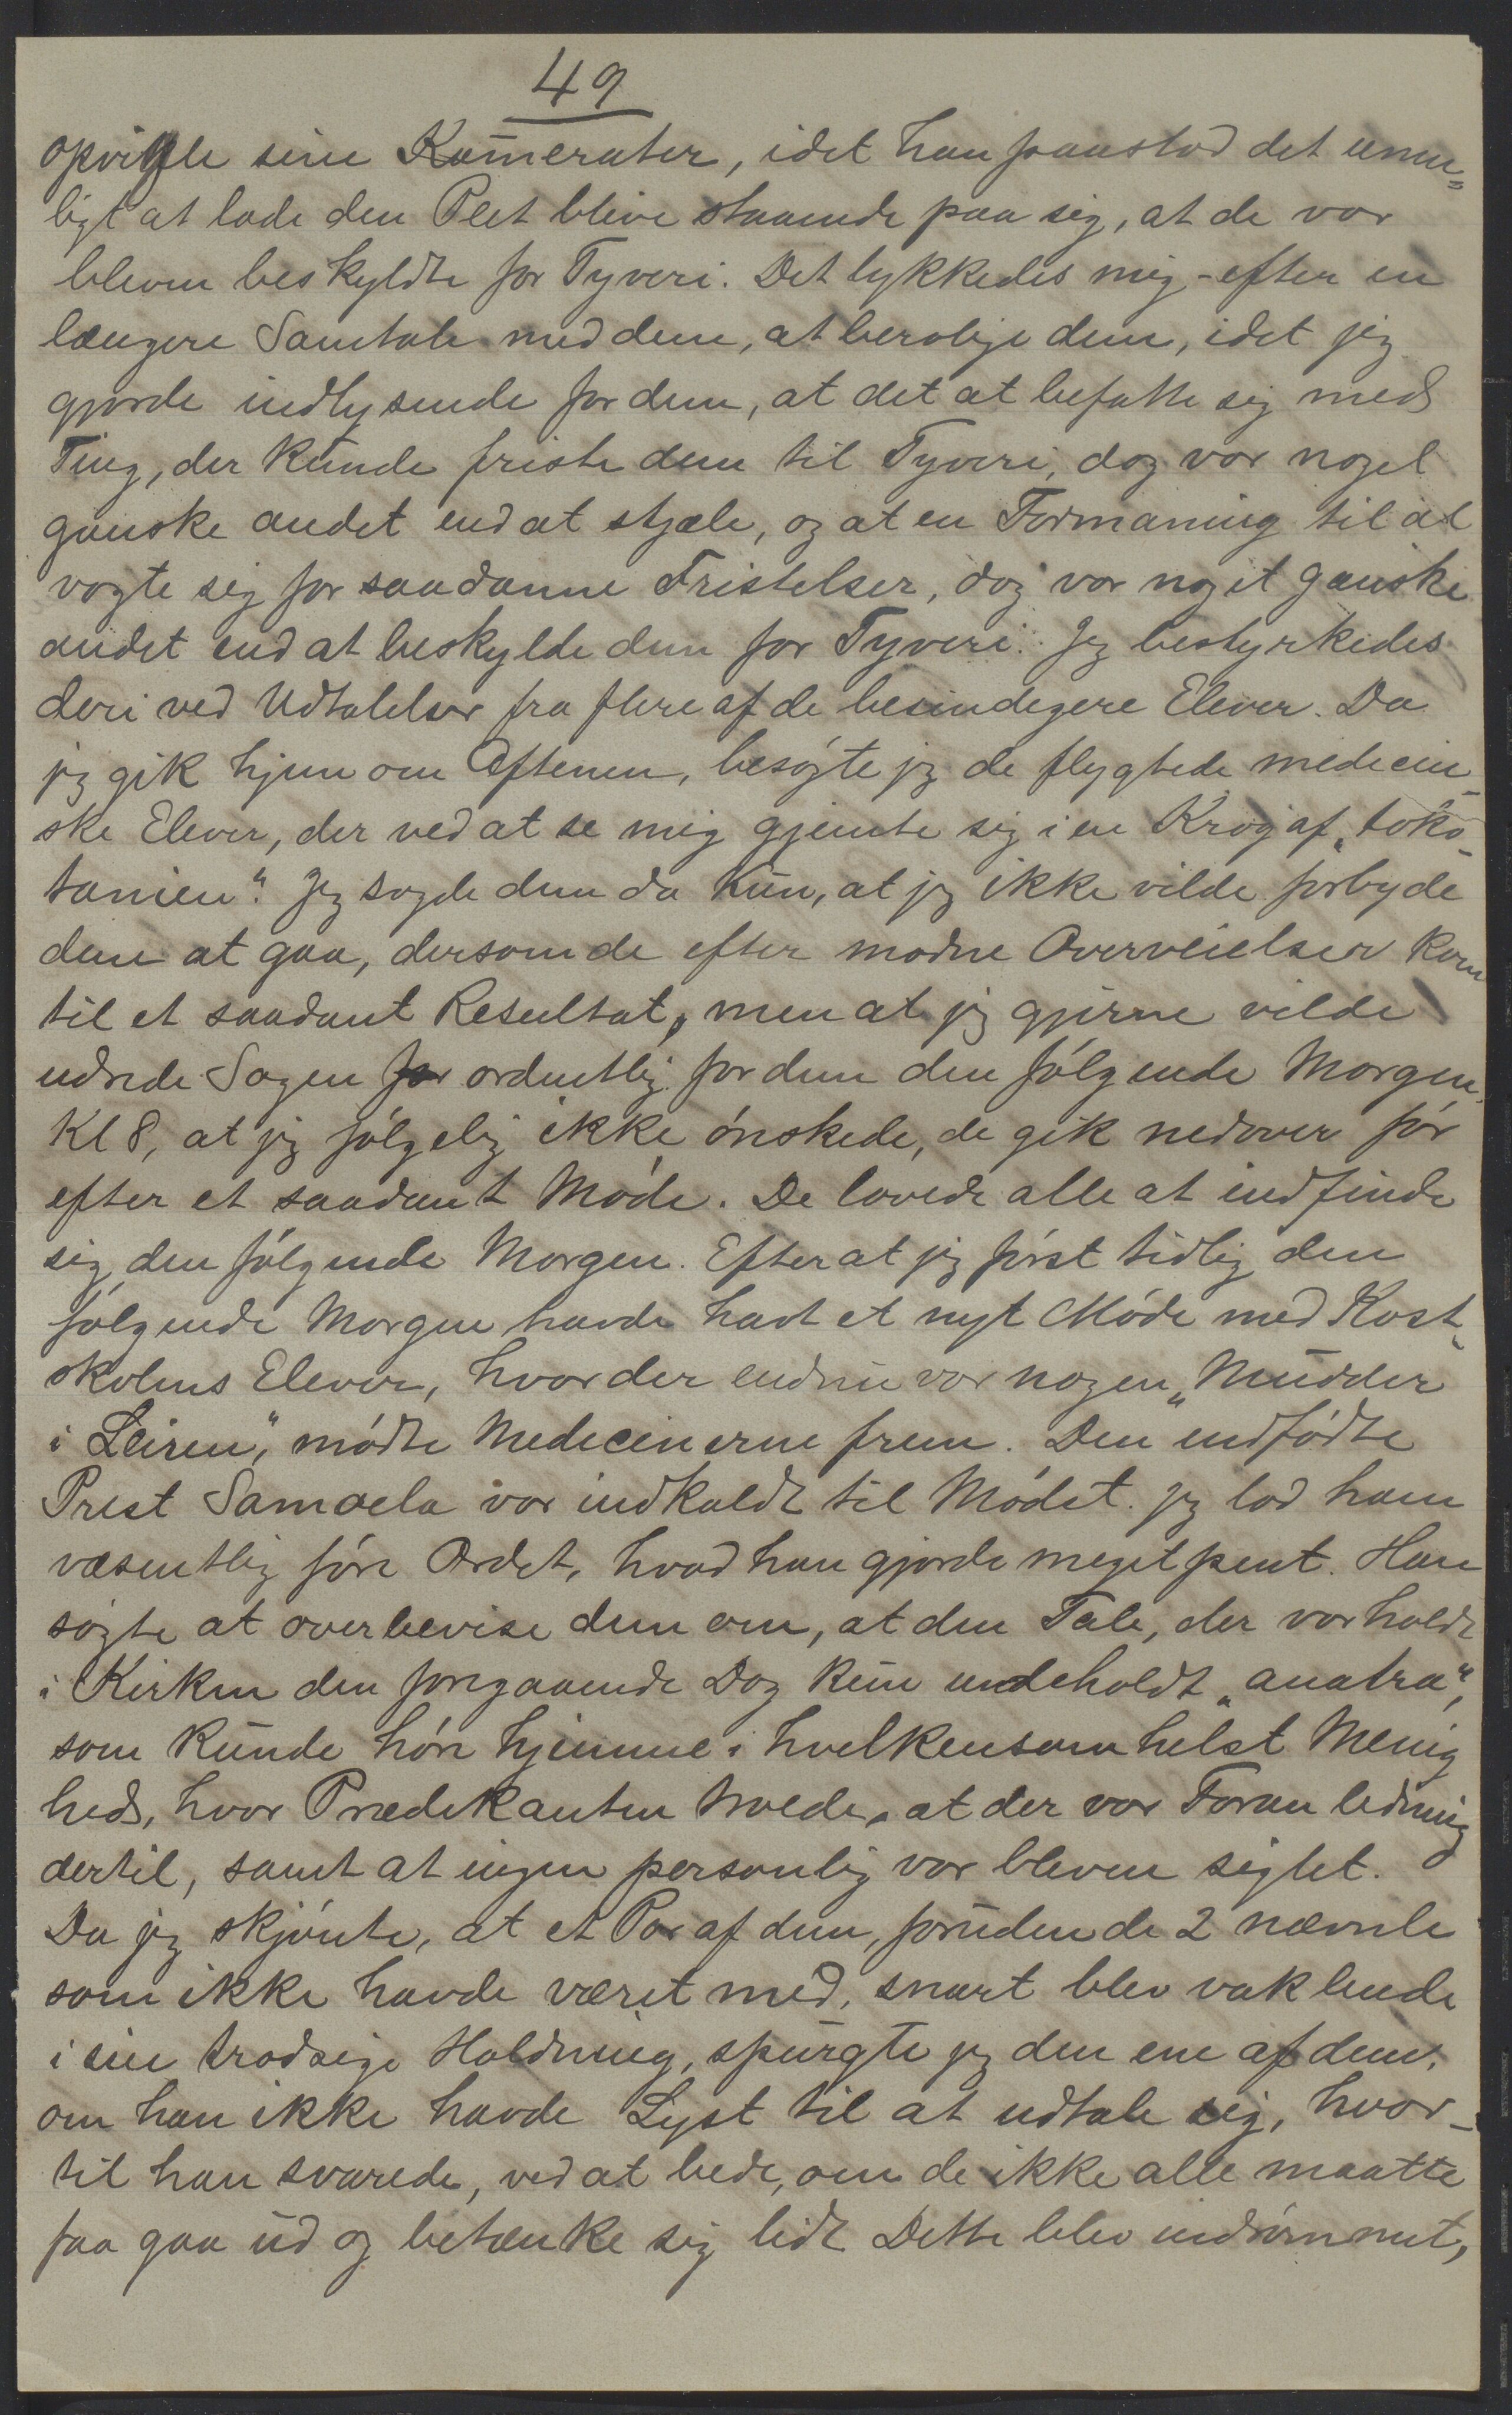 49
opvigle sine Kamerater, idet han paastod det umu=
ligt at lade den Plet blive staaende paa sig, at de var
bleven beskyldte for Tyveri. Det lykkedes mig - efter en
længere Samtale med dem, at berolige dem, idet jeg
gjorde indlysende for dem, at det at befatte sig med
Ting, der kunde friste dem til Tyveri, dog var noget
ganske andet end at stjæle, og at en Formaning til at
vogte sig for saadanne Fristelser, dog var noget ganske
andet end at beskylde dem for Tyveri. Jeg bestyrkedes
deri ved Udtalelser fra flere af de besindigere Elever. Da
jeg gik hjem om Aftenen, besøgte jeg de flygtede medicin-
ske Elever, der ved at se mig gjemte sig i en Krog af „toko-
tanien“. Jeg sagde dem da kun, at jeg ikke vilde forbyde
dem at gaa, dersom de efter modne Overveielser kom
til et saadant Resultat, men at jeg gjerne vilde
udrede Sagen for ordentlig for dem den følgende Morgen
Kl 8, at jeg følgelig ikke ønskede, de gik nedover før
efter et saadant Møde. De lovede alle at indfinde
sig den følgende Morgen. Efterat jeg først tidlig den
følgende Morgen havde havt et nyt Møde med Kost-
skolens Elever, hvor der endnu var nogen „Mudder
i Leiren“, mødte Medicinerne frem. Den indfødte
Prest Samoela var indkaldt til Mødet. Jeg lod ham
væsentlig føre Ordet, hvad han gjorde meget pent. Han
søgte at overbevise dem om, at den Tale, der var holdt
i Kirken den foregaaende Dag kun indeholdt „anatra“,
som kunde høre hjemme i hvilkensomhelst Menig
hed, hvor Prædikanten troede, at der var Foranledning
dertil, samt at ingen personlig var bleven sigtet.
Da jeg skjønte, at et Par af dem, foruden de 2 nævnte
som ikke havde været med, snart blev vaklende
i sin trodsige Holdning, spurgte jeg den ene af dem,
om han ikke havde Lyst til at udtale sig, hvor-
til han svarede, ved at bede, om de ikke alle maatte
faa gaa ud og betænke sig lidt. Dette blev indrømmet,